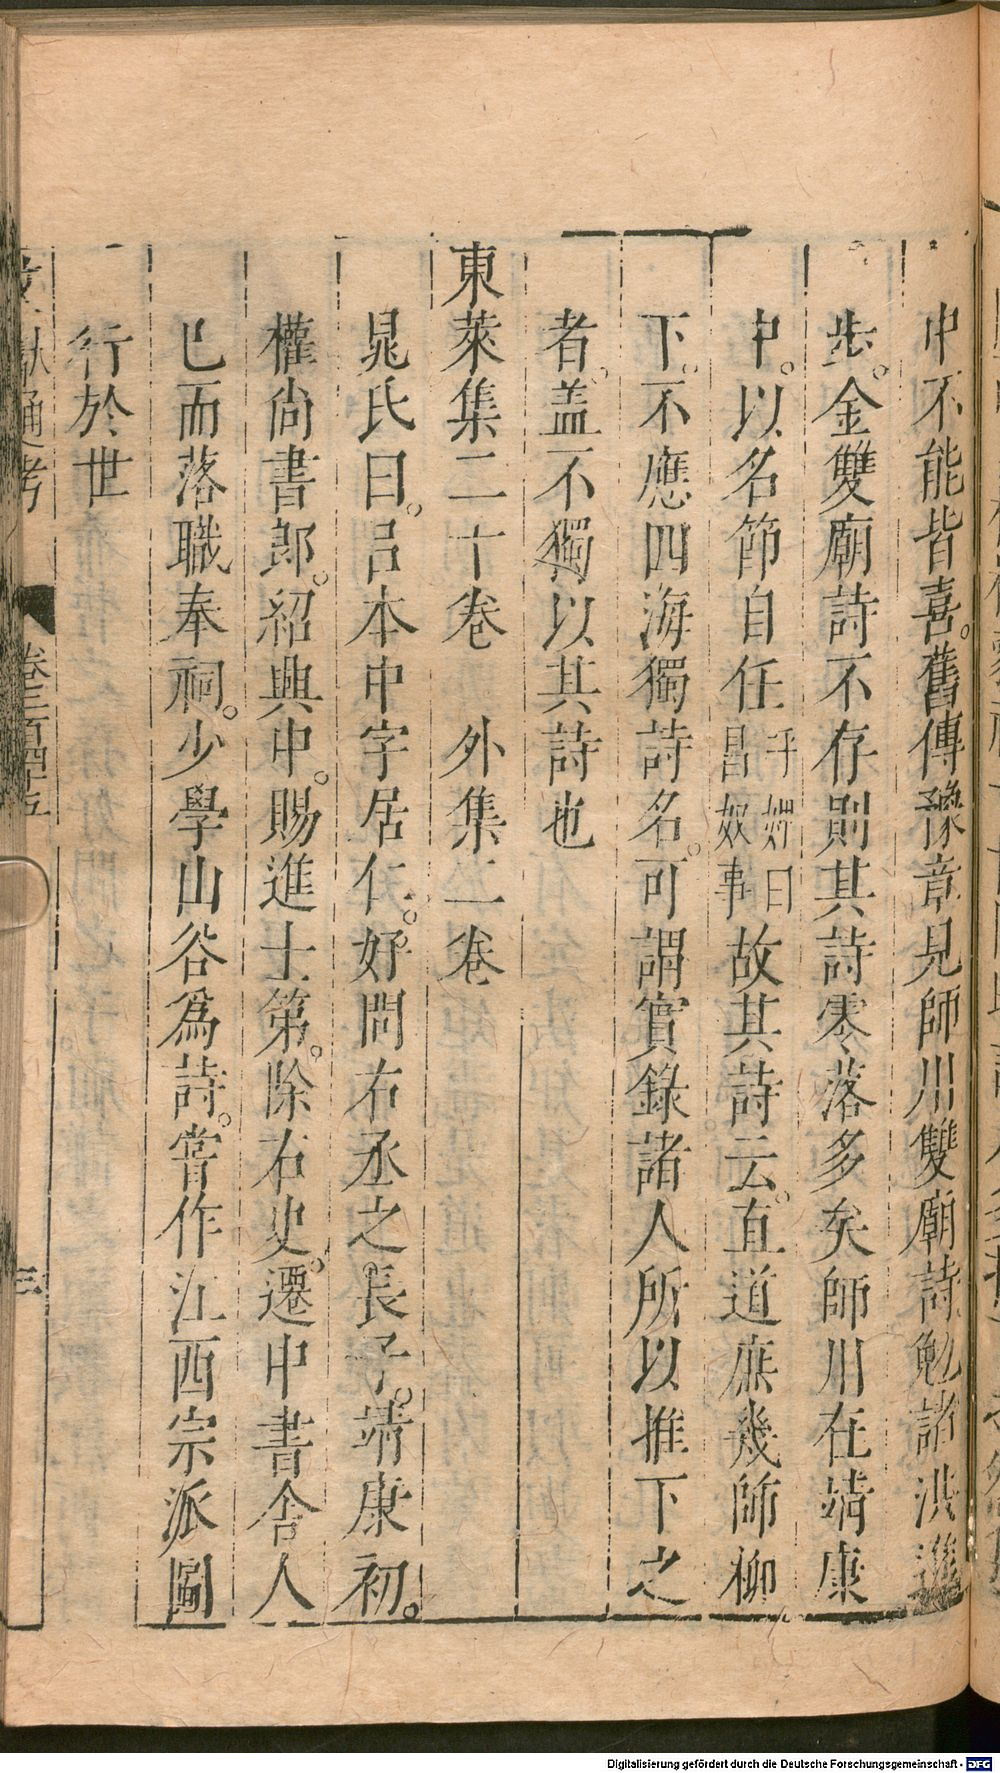 中不能皆喜。舊傳豫章見師川雙廟詩勉諸洪進
步。金雙廟詩不存則其詩零落多矣師川在靖康
中。以名節自任呼婢曰昌奴事故其詩云。直道庶幾師柳
下。不應四海獨詩名。可謂實錄諸人所以推下之
者。盖不獨以其詩也
東萊集二十卷　外集二卷
晁氏曰。呂本中字居仁。好問右丞之長子。靖康初。
權尚書郎。紹興中。賜進士第。除右史。遷中書舍人
已而落職奉祠。少學山谷爲詩。嘗作江西宗派圖
行於世
文獻通考　卷二百四十五　三
Digitalisierung gefördert durch die Deutsche Forschungsgemeinschaft - DFG